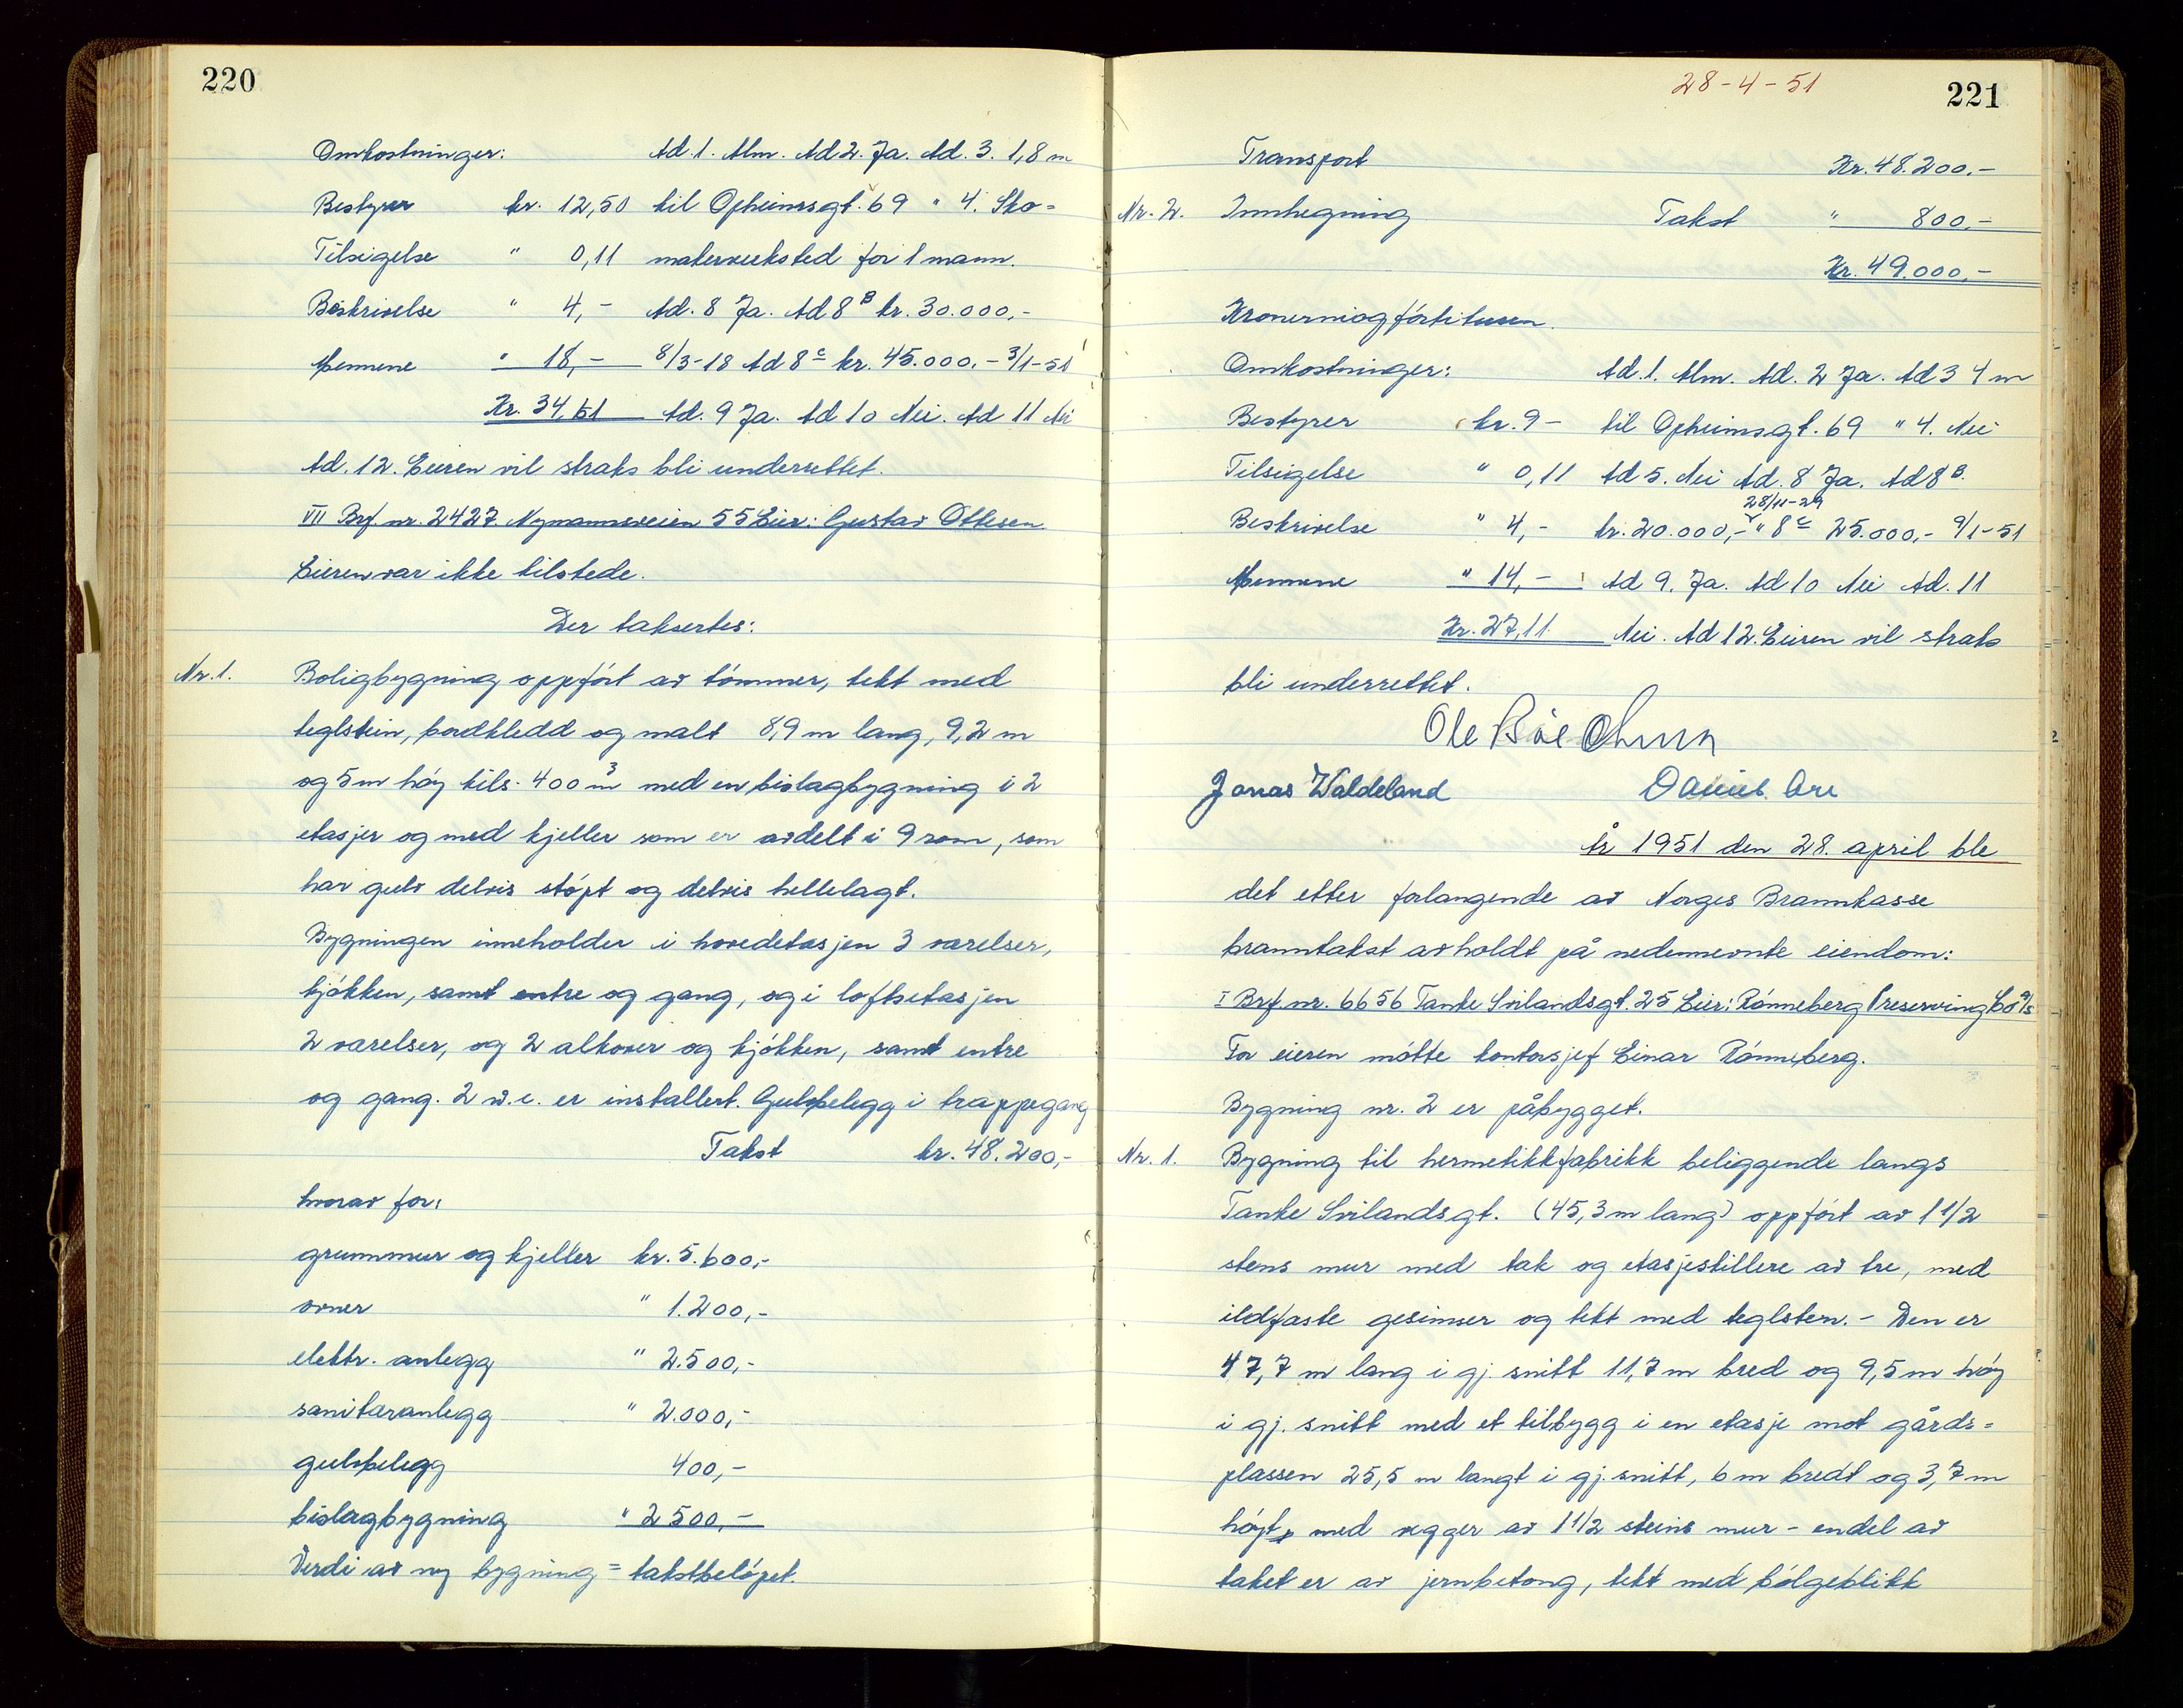 220
Omkostninger: Ad. 1. Alm. Ad 2. Ja. Ad. 3. 1,8 m
Bestyrer kr. 12,50 til Opheimsgt. 69 " 4. Sko-
Tilsigelse " 0,11 makerverksted for 1 mann.
Beskrivelse " 4,- Ad. 8 Ja. Ad 8 B kr. 30.000,-
Mennene " 18,- 8/3-18 Ad 8 c kr. 45.000.- 3/1-51
Kr. 34,61 Ad. 9 Ja. Ad 10 Nei. Ad 11 Nei
Ad. 12. Eieren vil straks bli underrettet.
VII Brf. nr. 2427 Nymannsveien 55 Eier: Gustav Ottesen
Eieren var ikke tilstede.
Der taksertes:
Nr. 1. Boligbygning oppfört av tömmer, tekt med
teglstein, bordkledd og malt 8,9 m lang, 9,2 m
og 5 m höy tils. 400 m3 med en bislagbygning i 2
etasjer og med kjeller som er avdelt i 9 rom, som
har gulv delvis stöpt og delvis hellelagt.
Bygningen inneholder i hovedetasjen 3 værelser,
kjökken, samt entre og gang, og i loftsetasjen
2 værelser, og 2 alkover og kjökken, samt entre
og gang. 2 w.c. er installert. Gulvbelegg i trappegang
Takst kr. 48.200,-
hvorav for:
grunnmur og kjeller kr. 5.600,-
ovner " 1.200,-
elektr. anlegg " 2.500,-
sanitæranlegg " 2.000,-
gulvbelegg 400,-
bislagbygning " 2500,-
Verdi av ny bygning = takstbelöpet.
28-4-51
221
Transport Kr. 48.200.-
Nr. 2. Innhegning Takst " 800,-
Kr. 49.000,-
Kronerniogförtitusen.
Omkostninger: Ad. 1. Alm. Ad. 2 Ja. Ad 3 4 m
Bestyrer kr. 9- til Opheimsgt. 69 " 4. Nei
Tilsigelse " 0,11 Ad 5. Nei Ad. 8 Ja. Ad 8 B.
28/11-29
Beskrivelse " 4,- kr. 20.000,- " 8 c 25.000,- 9/1-51
Mennene " 14,- Ad 9. Ja. Ad 10 Nei Ad. 11
Kr. 27,11 Nei. Ad 12. Eieren vil straks
bli underrettet.
Ole Böe
Jonas Waldeland Daniel
År 1951 den 28. april ble
det etter forlangende av Norges Brannkasse
branntakst avholdt på nedennevnte eiendom:
I Brf. nr. 6656 Tanke Svilandsgt. 25 Eier: Rönneberg Preserving Co a/s
For eieren mötte kontorsjef Einar Rönneberg.
Bygning nr. 2 er påbygget.
Nr. 1. Bygning til hermetikkfabrikk beliggende langs
Tanke Svilandsgt. (45,3 m lang) oppfört av 1 1/2
stens mur med tak og etasjestillere av tre, med
ildfaste gesimser og tekt med teglsten. - Den er
47,7 m lang i gj. snitt 11,7 m bred og 9,5 m höy
i gj. snitt med et tilbygg i en etasje mot gårds-
plassen 25,5 m langt i gj. snitt, 6 m bredt og 3,7 m
höyt, med vegger av 1 1/2 steins mur - endel av
taket er av jernbetong, tekt med bölgeblikk